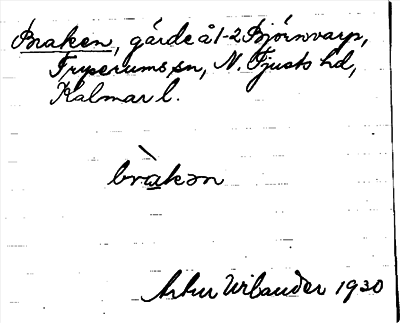 Braken, gärde å 1-2 Björnvarp,
Fryserums sn, N. Tjusts hd,
Kalmar l.
bràkən
Artur Wilander 1930